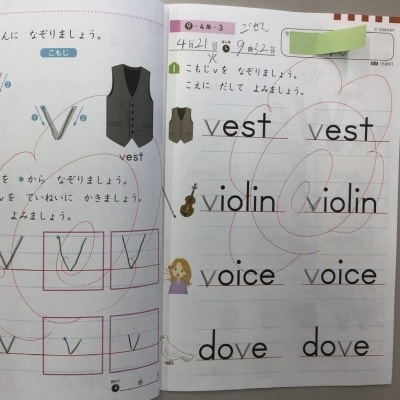 んに なぞりましょう。
こもじ
①
②
v
vest
を ●から なぞりましょう。
vを ていねいに かきましょう。
よみましょう。
V V V
V V V
9-4集-3
ごぜん
4月21日 9時32分
1 こもじvを なぞりましょう。
こえに だして よみましょう。
vest vest
violin violin
voice voice
dove dove